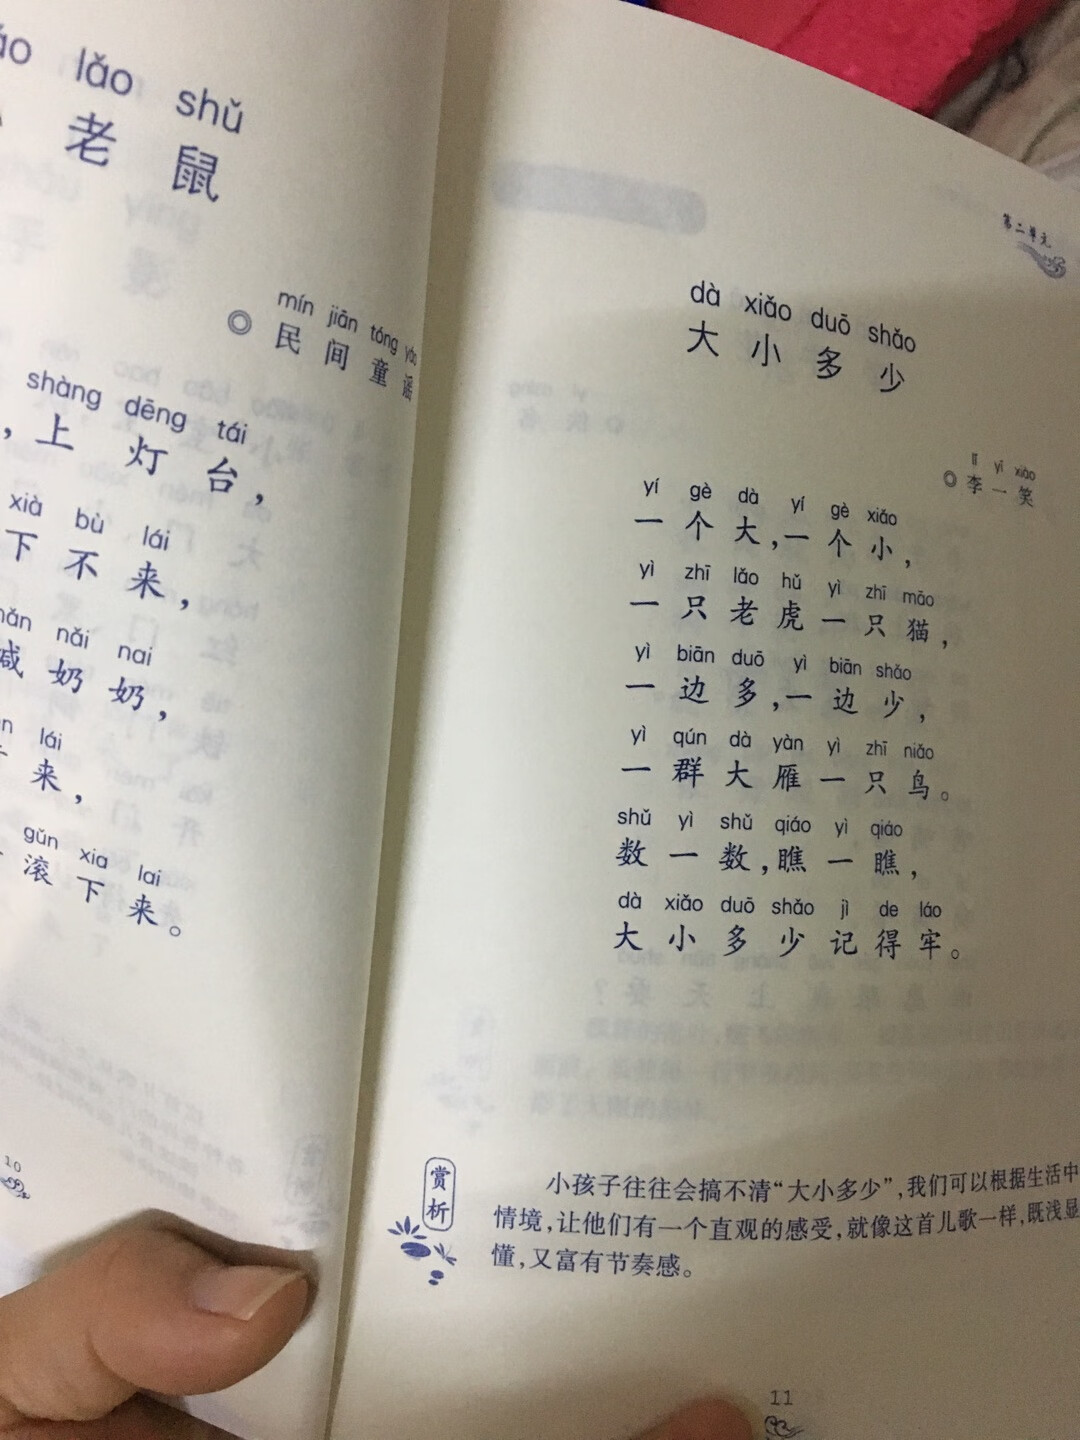 lǎo shǔ
老 鼠
mín jiān tóng yáo
◎ 民 间 童 谣
shàng dēng tái
，上 灯 台，
xià bù lái
下 不 来，
nǎi nai
喊 奶 奶，
lái
来，
gǔn xia lai
滚 下 来。
10
第二单元
dà xiǎo duō shǎo
大 小 多 少
lǐ yī xiào
◎ 李 一 笑
yí gè dà yí gè xiǎo
一 个 大，一 个 小，
yì zhī lǎo hǔ yì zhī māo
一 只 老 虎 一 只 猫，
yì biān duō yì biān shǎo
一 边 多，一 边 少，
yì qún dà yàn yì zhī niǎo
一 群 大 雁 一 只 鸟。
shǔ yì shǔ qiáo yì qiáo
数 一 数，瞧 一 瞧，
dà xiǎo duō shǎo jì de láo
大 小 多 少 记 得 牢。
赏析
小孩子往往会搞不清“大小多少”，我们可以根据生活中
情境，让他们有一个直观的感受，就像这首儿歌一样，既浅显
懂，又富有节奏感。
11